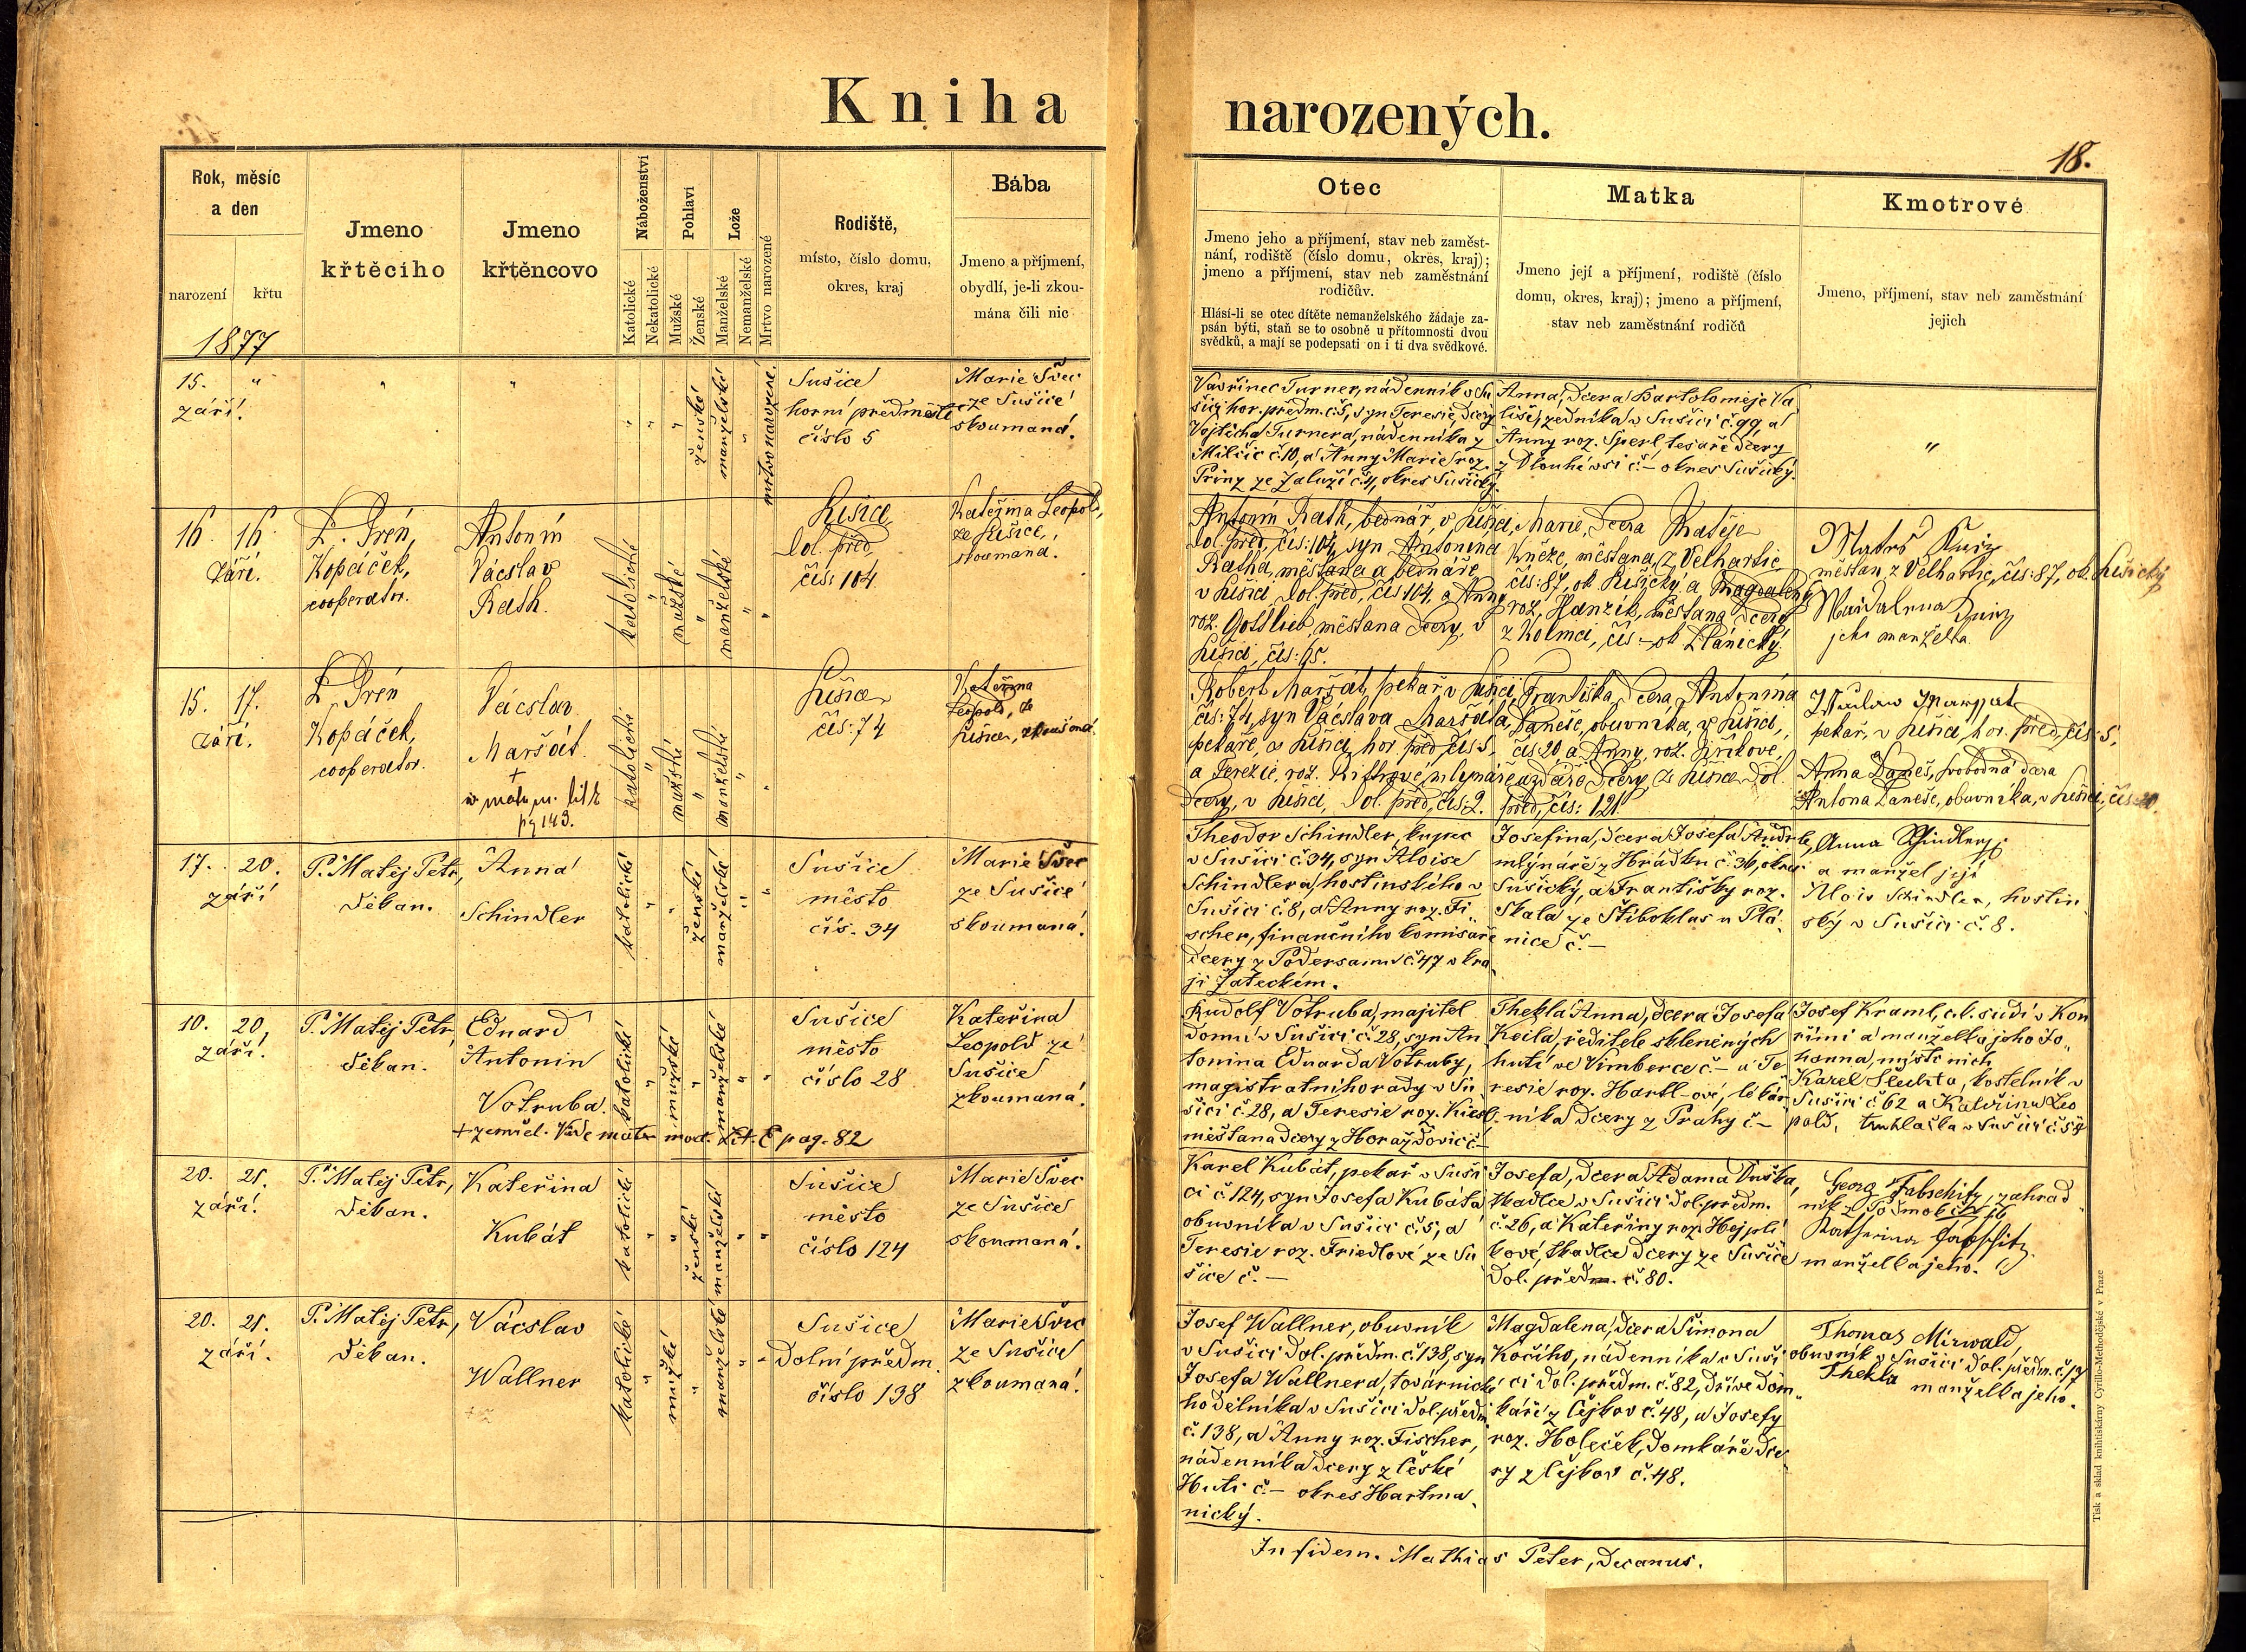 Kniha narozených.
18.
Rok, měsíc
a den
narození křtu
1877
Jmeno
křtěcího
Jmeno
křtěncovo
Náboženství
Katolické
Nekatolické
Pohlaví
Mužské
Ženské
Lože
Manželské
Nemanželské
Mrtvo narozené
Rodiště,
místo, číslo domu,
okres, kraj
Bába
Jmeno a příjmení,
obydlí, je-li zkou-
mána čili nic
Otec
Jmeno jeho a příjmení, stav neb zaměst-
nání, rodiště (číslo domu, okrës, kraj);
jmeno a příjmení, stav neb zaměstnání
rodičův.
Hlásí-li se otec dítěte nemanželského žádaje za-
psán býti, staň se to osobně u přítomnosti dvou
svědků, a mají se podepsati on i ti dva svědkové.
Matka
Jmeno její a příjmení, rodiště (číslo
domu, okres, kraj); jmeno a příjmení,
stav neb zaměstnání rodičů
Kmotrové
Jmeno, příjmení, stav neb zaměstnání
jejich
15. "
září.
"
"
"
"
"
ženské
manželské
"
mrtvo narozené.
Sušice
horní předměstí
číslo 5
Marie Švec
ze Sušice
skoumaná.
Vavřinec Turner, nádenník v Su
šici hor. předm. č. 5, syn Teresie, dcery
Vojtěcha Turnera, nádenníka z
Milčic č. 10, a Anny Marie roz.
Prinz ze Záluží č. 4, okres Sušický.
Anna, dcera Bartoloměje Va
liše, zedníka v Sušici č. 99, a
Anny roz. Sperl, tesaře dcery
z Dlouhé vsi č. – okres Sušický.
"
16. 16.
září.
P. Kopáček,
cooperator.
Antonín
Vácslav
Rath.
katolické
"
mužské
"
manželské
"
"
Sušice
dol. před.
čís: 104
Kateřina Leopold,
ze Sušice,
skoumaná.
Antonín Rath, bednář, v Sušici,
dol. před, čís: 104, syn Antonína
Ratha, měšťana a bednáře
v Sušici dol. před, čís 104, a Anny
roz. Gottlieb, měšťana dcery, v
Sušici, čís: 65.
Marie, dcera Matěje
Kněze, měšťana, z Velhartic
čís: 87, ok Sušický a Magdaleny
roz. Hanzík, měšťana dcery
z Kolince, čís: – ok Plánický.
měšťan z Velhartic, čís: 87, ok. Sušický
jeho manželka.
15. 17.
září.
Kopáček,
cooperator.
Vácslav
Maršát.
+
pg 143.
katolické
"
mužské
"
manželské
"
"
Sušice
čís: 74
Kateřina
Leopold, ze
Sušice, zkoušená.
Robert Maršát, pekař v Sušici,
čís: 74, syn Vácslava Maršáta,
pekaře, v Sušici, hor. před, čís: 5,
dcery, v Sušici, dol. před, čís: 2.
Františka, dcera Antonína
Daneše, obuvníka, v Sušici,
čís. 20, a Anny, roz. Jiříkové,
dcery, ze Sušice dol.
před, čís: 121.
Václav Marszat
pekař, v Sušici, hor. před, čís: 5,
Anna Daneš, svobodná dcera
Antona Daneše, obuvníka, v Sušici, čís: 20.
17. 20.
září
P. Matěj Petr,
děkan.
Anna
Schindler
katolické
"
"
ženské
manželské
"
"
Sušice
město
čís. 34
Marie Švec
ze Sušice
skoumaná.
Theodor Schindler, kupec
v Sušici č. 34, syn Aloise
Schindlera, hostinského v
Sušici č. 8, a Anny roz. Fi-
scher, finančního komisaře
dcery z Podersamu č. 47 v kra
ji Žateckém.
Josefina, dcera Josefa Andrle,
mlynáře z Hrádku č. 36, okres
Sušický, a Františky roz.
Skala ze Štiboklas u Plá-
nice č. –
Anna Schindler
a manžel její
Alois Schindler, hostin
ský v Sušici č. 8.
10. 20.
září.
P. Matěj Petr,
děkan.
Eduard
Antonín
Votruba.
+ zemřel. Vide matr. mort. Lit. C pag. 82
katolické
"
mužské
"
manželské
"
"
Sušice
město
číslo 28
Kateřina
Leopold ze
Sušice
zkoumaná.
Rudolf Votruba, majitel
domu v Sušici č. 28, syn An
tonína Eduarda Votruby,
magistratního rady v Su
šici č. 28, a Teresie roz. Kiesl.
měšťana dcery z Horažďovic č. –
Thekla Anna, dcera Josefa
Keila, ředitele skleněných
hutí ve Vimberce č. – a Te
resie roz. Hartl-ové, lékár-
níka dcery z Prahy č. –
Josef Kraml, c. k. sudí v Kou
řimi a manželka jeho Jo-
hanna, místo nich
Karel Šlechta, kostelník v
Sušici č. 62 a Kateřina Leo
pold, truhlářka v Sušici č. 58
20. 21.
září.
P. Matěj Petr,
děkan.
Kateřina
Kubát
katolické
"
"
ženské
manželské
"
"
Sušice
město
číslo 124
Marie Švec
ze Sušice
skoumaná.
Karel Kubát, pekař v Suši
ci č. 124, syn Josefa Kubáta
obuvníka v Sušici č. 5, a
Teresie roz. Friedlové ze Su
šice č. –
Josefa, dcera Adama Duška,
tkadlce v Sušici dol. předm.
č. 26, a Kateřiny roz. Hejplí
kové, tkadlce dcery ze Sušice
dol. předm. č. 80.
Georg Fabschitz, zahrad
Katharina Fabschitz
manželka jeho.
20. 21.
září.
P. Matěj Petr,
děkan.
Vácslav
Wallner
katolické
"
mužské
"
manželské
"
"
Sušice
dolní předm.
číslo 138
Marie Švec
ze Sušice
zkoumaná.
Josef Wallner, obuvník
v Sušici dol. předm. č. 138, syn
Josefa Wallnera, továrnické
ho dělníka v Sušici dol. předm.
č. 138, a Anny roz. Fischer,
nádenníka dcery z České
Huti č. – okres Hartma-
nický.
Magdalena, dcera Šimona
Kočího, nádenníka v Suši
ci dol. předm. č. 82, dříve dom-
káře z Čejkov č. 48, a Josefy
roz. Holeček, domkáře dce
ry z Čejkov č. 48.
Thomas Mirwald,
obuvník v Sušici dol. předm. č. 17
Thekla
manželka jeho.
In fidem. Mathias Peter, decanus.
Tisk a sklad knihtiskárny Cyrillo-Methodějské v Praze